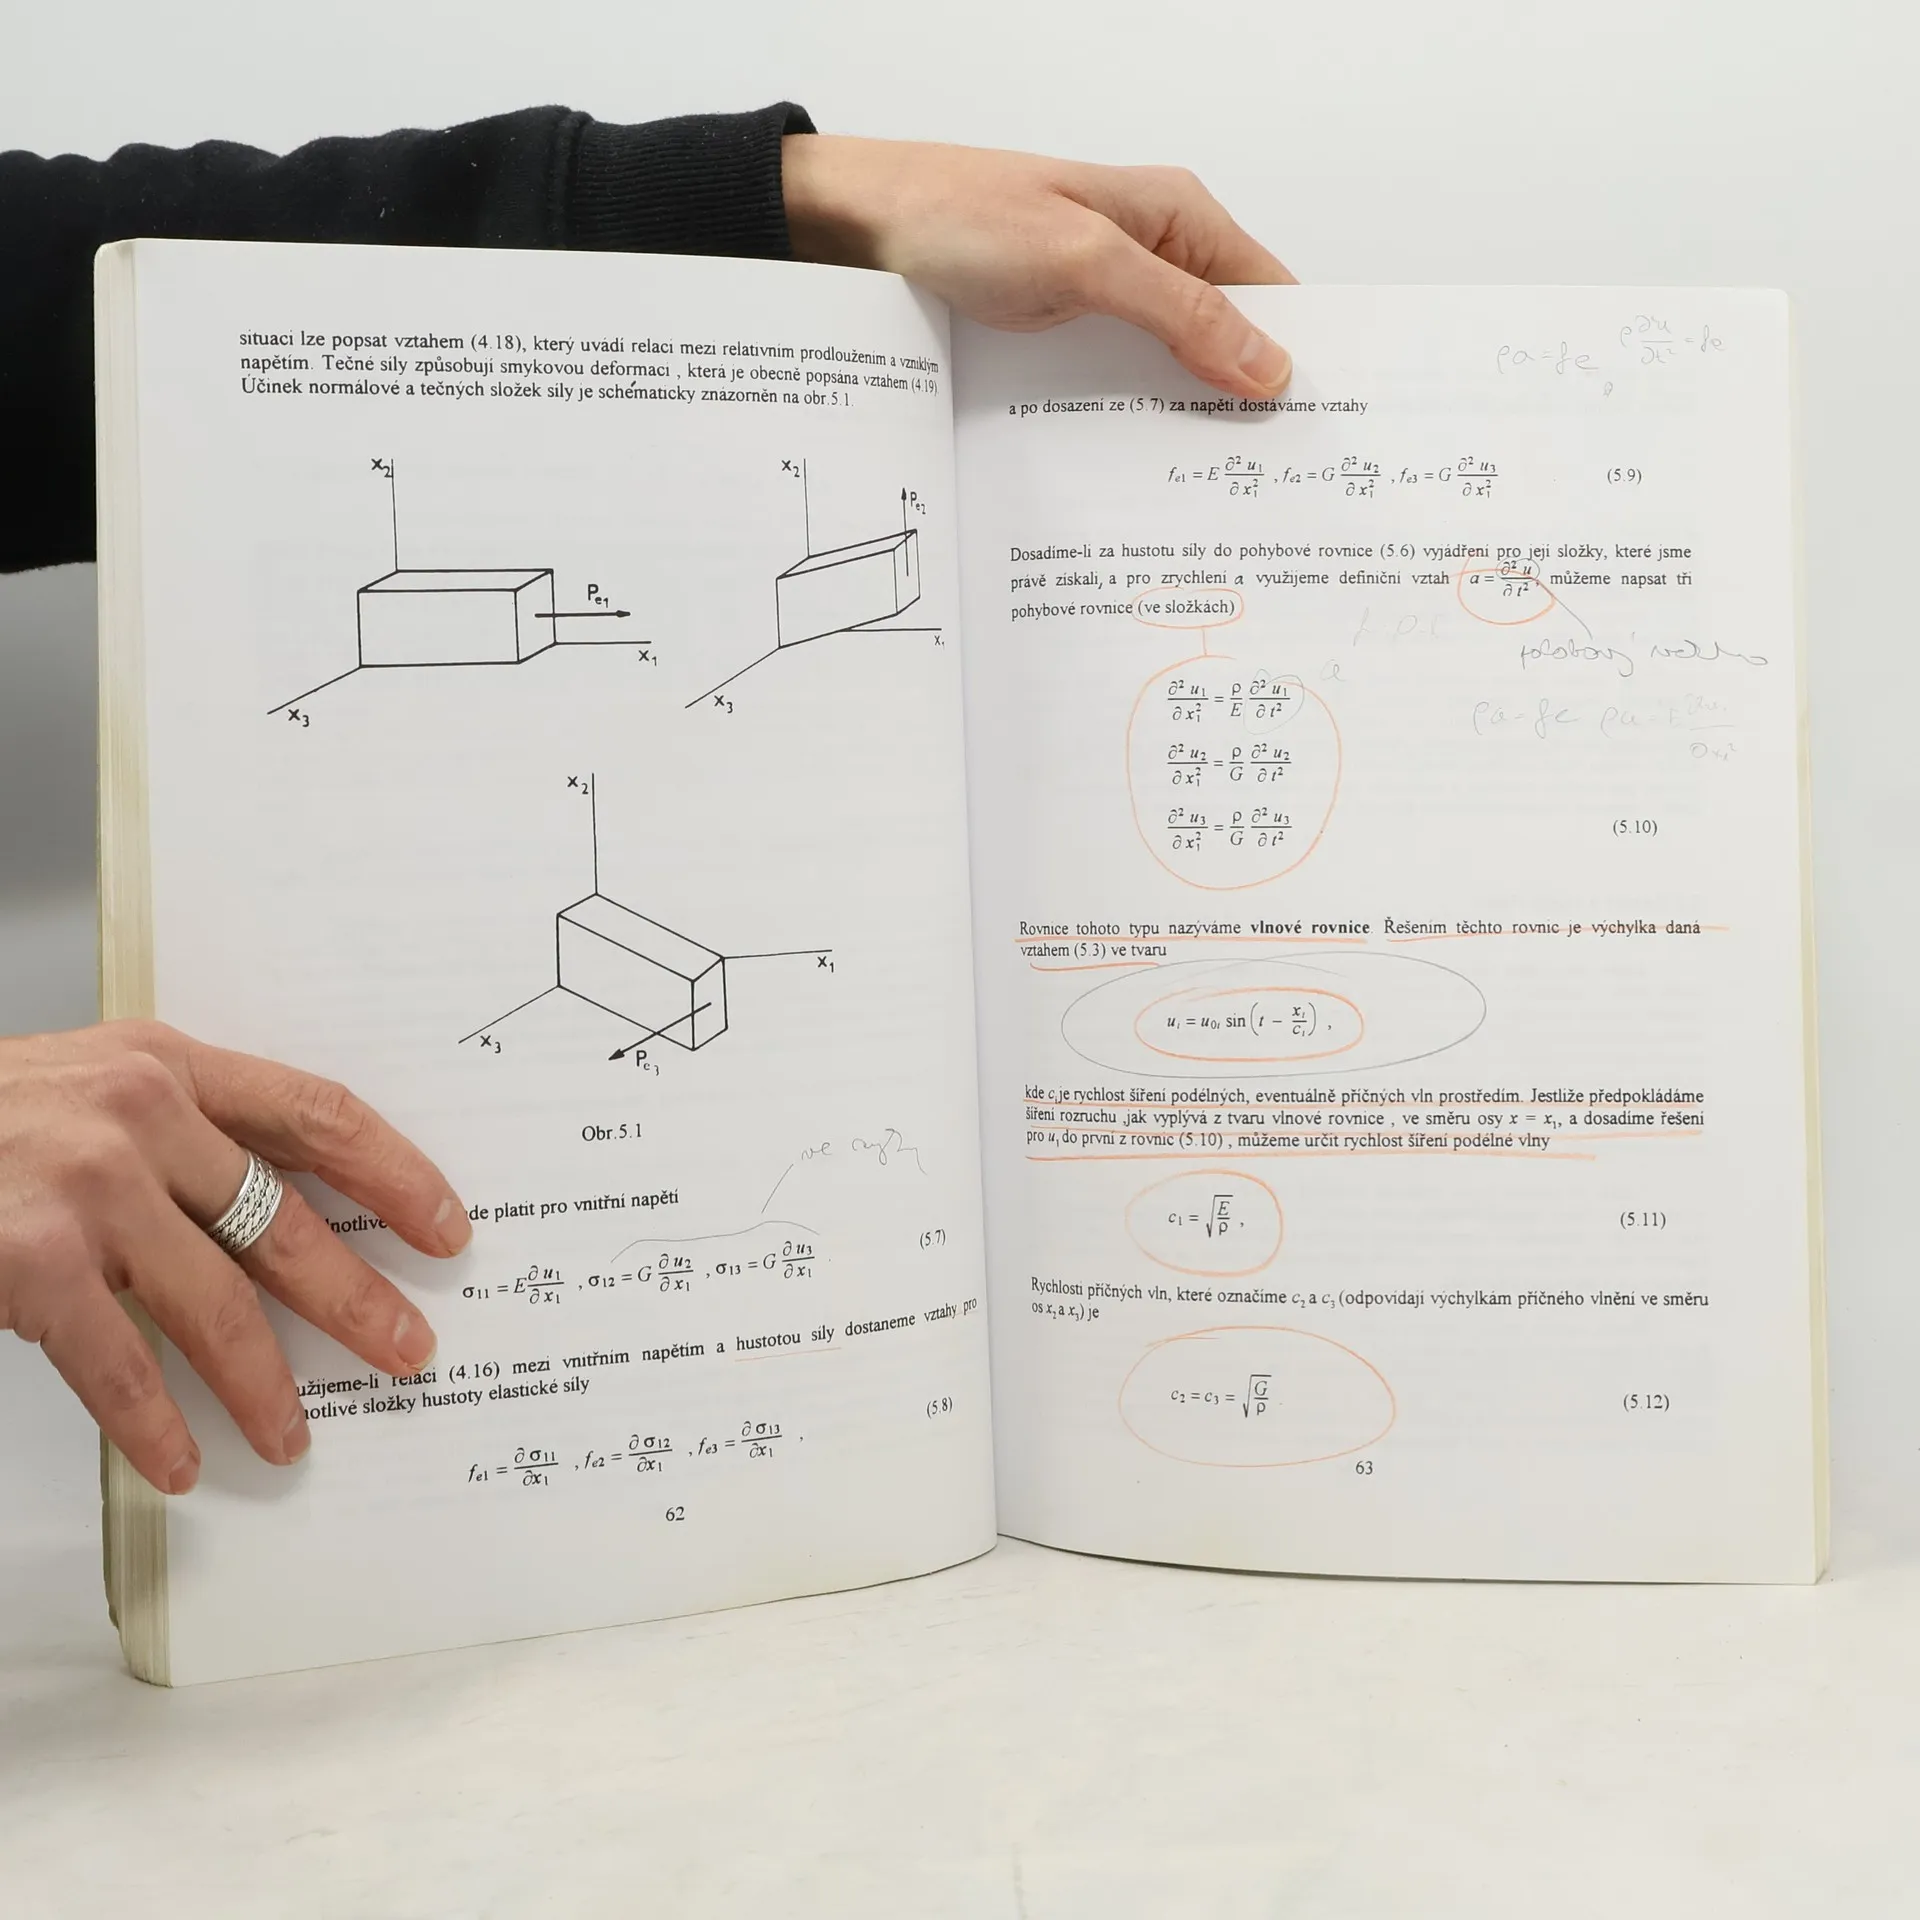 situaci lze popsat vztahem (4.18), který uvádí relaci mezi relativním prodloužením a vzniklým
napětím. Tečné síly způsobují smykovou deformaci , která je obecně popsána vztahem (4.19).
Účinek normálové a tečných složek síly je schématicky znázorněn na obr.5.1.
x2
Pe1
x1
x3
x2
Pe2
x1
x3
x2
x1
x3
Pe3
Obr.5.1
de platit pro vnitřní napětí
σ11 = E ∂u1/∂x1 , σ12 = G ∂u2/∂x1 , σ13 = G ∂u3/∂x1 . (5.7)
užijeme-li relaci (4.16) mezi vnitřním napětím a hustotou síly dostaneme vztahy pro
notlivé složky hustoty elastické síly
fe1 = ∂σ11/∂x1 , fe2 = ∂σ12/∂x1 , fe3 = ∂σ13/∂x1 , (5.8)
62
ρa = fe ρ ∂²u/∂t² = fe
a po dosazení ze (5.7) za napětí dostáváme vztahy
fe1 = E ∂²u1/∂x1² , fe2 = G ∂²u2/∂x1² , fe3 = G ∂²u3/∂x1² (5.9)
Dosadíme-li za hustotu síly do pohybové rovnice (5.6) vyjádření pro její složky, které jsme
právě získali, a pro zrychlení a využijeme definiční vztah a = ∂²u/∂t², můžeme napsat tři
pohybové rovnice (ve složkách)
∂²u1/∂x1² = ρ/E ∂²u1/∂t²
a
ρa = fe
∂²u2/∂x1² = ρ/G ∂²u2/∂t²
∂²u3/∂x1² = ρ/G ∂²u3/∂t² (5.10)
Rovnice tohoto typu nazýváme vlnové rovnice. Řešením těchto rovnic je výchylka daná
vztahem (5.3) ve tvaru
ui = u0i sin(t − xi/ci) ,
kde ci je rychlost šíření podélných, eventuálně příčných vln prostředím. Jestliže předpokládáme
šíření rozruchu ,jak vyplývá z tvaru vlnové rovnice , ve směru osy x = x1, a dosadíme řešení
pro u1 do první z rovnic (5.10) , můžeme určit rychlost šíření podélné vlny
c1 = √(E/ρ) , (5.11)
Rychlosti příčných vln, které označíme c2 a c3 (odpovídají výchylkám příčného vlnění ve směru
os x2 a x3) je
c2 = c3 = √(G/ρ) . (5.12)
63